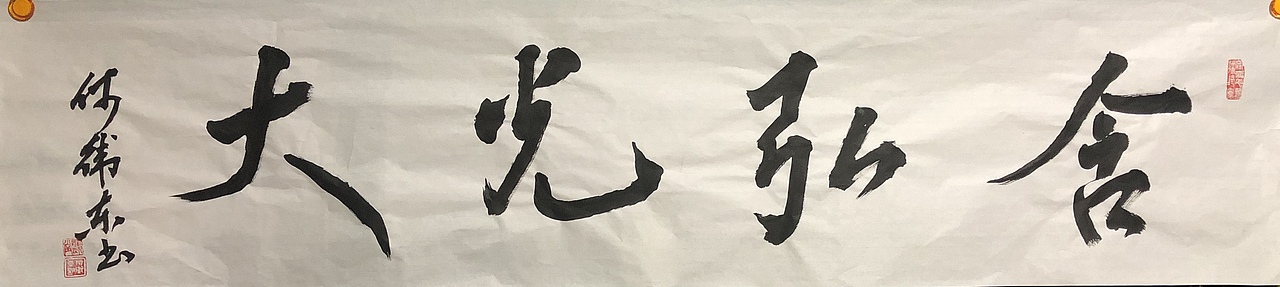 含弘光大
何衛东书